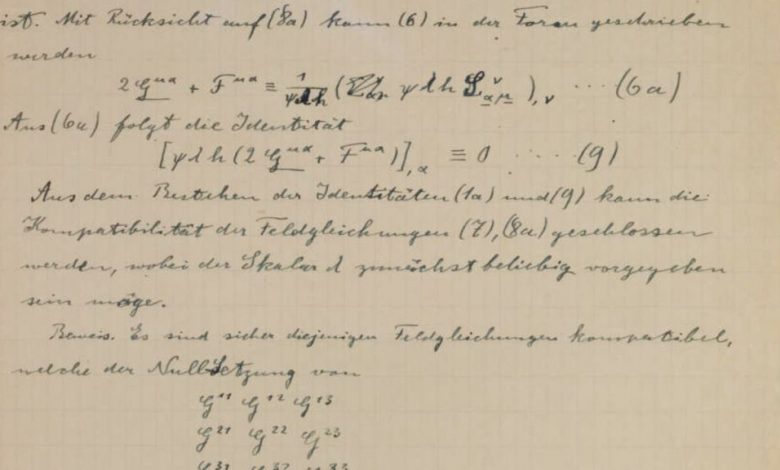 ist. Mit Rücksicht auf (8a) kann (6) in der Form geschrieben
werden
2 G^{μα} + F^{μα} ≡ 1/ψλh ( ψ λ h L^ν_{αμ} ),ν ··· (6a)
Aus (6a) folgt die Identität
[ψ λ h (2 G^{μα} + F^{μα})],α ≡ 0 ····· (9)
Aus dem Bestehen der Identitäten (1a) und (9) kann die
Kompatibilität der Feldgleichungen (7), (8a) geschlossen
werden, wobei der Skalar λ zunächst beliebig vorgegeben
sein möge.
Beweis. Es sind sicher diejenigen Feldgleichungen kompatibel,
welche der Nullsetzung von
G^{11} G^{12} G^{13}
G^{21} G^{22} G^{23}
G^{31} G^{32} G^{33}